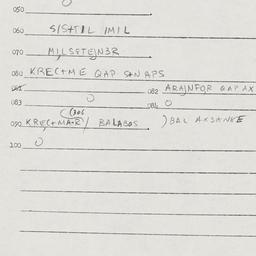 050 O
060 S/S+TIL IMIL
070 MILSFTEJN3R
080 KREC+ME QAP S+N APS
081 082 ARAJNFOR QAP AX
083 O 084 O
090 KREC+MA·R / BALABOS ) BAL AXSANKE
100 O